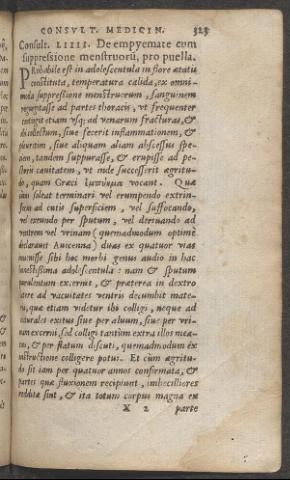 CONSVLT. MEDICIN. 323
Consult. LIIII. De empyemate cum
suppressione menstruorũ, pro puella.
PRobabile est in adolescentula in flore ætatis
constituta, temperatura calida, ex omni-
moda suppressione menstruorum, sanguinem
regurgitasse ad partes thoracis, vt frequenter
contingit etiam vsq; ad venarum fracturas, &
ibi collectum, siue fecerit inflammationem, &
pleuritim, siue aliquam aliam abscessus spe-
ciem, tandem suppurasse, & erupisse ad pe-
ctoris cauitatem, vt inde successerit ægritu-
do, quam Græci vocant. Quæ
cùm soleat terminari vel erumpendo extrin-
secus ad cutis superficiem, vel suffocando,
vel exeundo per sputum, vel deriuando ad
ventrem vel vrinam (quemadmodum optimè
declarauit Auicenna) duas ex quatuor vias
inuenisse sibi hoc morbi genus audio in hac
honestissima adolescentula: nam & sputum
purulentum excernit, & præterea in dextro
latere ad vacuitates ventris decumbit mate-
ria, quæ etiam videtur ibi colligi, neque ad
naturales exitus siue per aluum, siue per vri-
nam excerni, sed colligi tantùm extra illos mea-
tus, & per flatum discuti, quemadmodum ex
instructione colligere potui. Et cùm ægritu-
do sit iam per quatuor annos confirmata, &
partes quæ fluxionem recipiunt, imbecilliores
redditæ sint, & ita totum corpus magna ex
X 2 parte